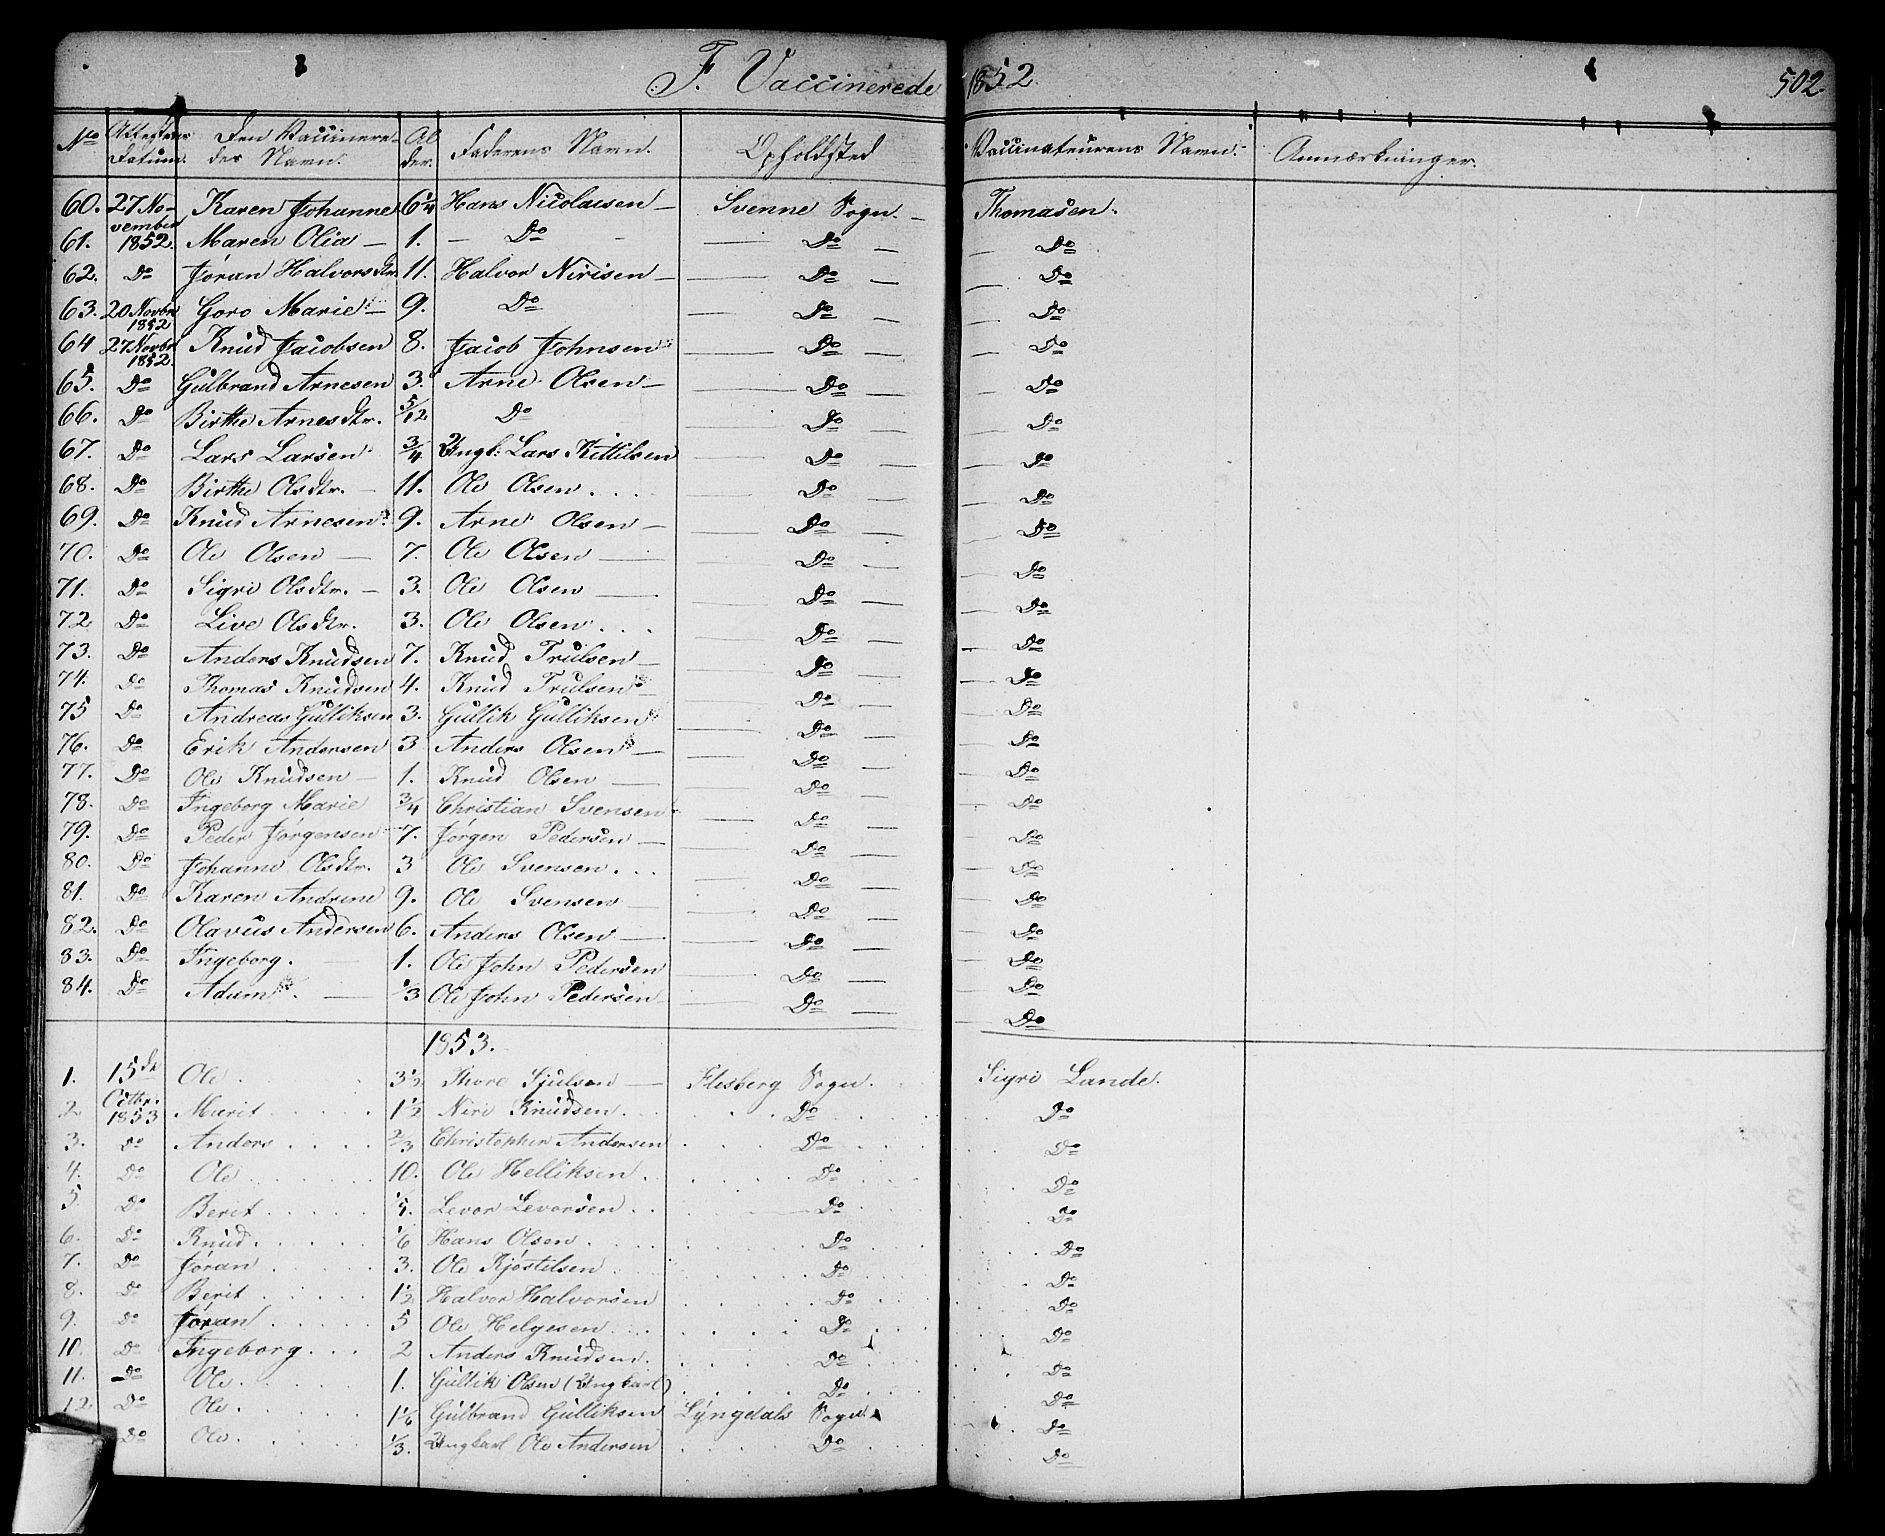 F. Vaccinerede 1852. 502.
No Attestens Datum. Den Vaccineredes Navn. Alder. Faderens Navn. Opholdsted Vaccinateurens Navn. Anmærkninger.
60. 27 November 1852. Karen Johanne 6 1/4 Hans Nicolaisen Svenne Sogn. Thomasen.
61. Maren Olia 1. Do Do Do
62. Do Jøran Halvorsdtr. 11. Halvor Nirisen Do Do
63. 20 Novbr 1852 Goro Marie 9. Do Do Do
64 27 Novbr 1852. Knud Jacobsen 8. Jacob Johnsen Do Do
65. Do Gulbrand Arnesen 3. Arne Olsen Do Do
66. Do Birthe Arnesdtr. 5/12 Do Do Do
67. Do Lars Larsen 3/4 Ungk: Lars Kittilsen Do Do
68. Do Birthe Olsdtr. 11. Ole Olsen Do Do
69. Do Knud Arnesen 9. Arne Olsen Do Do
70. Do Ole Olsen 7. Ole Olsen Do Do
71. Do Sigri Olsdtr. 3. Ole Olsen Do Do
72. Do Live Olsdtr. 3. Ole Olsen Do Do
73. Do Anders Knudsen 7. Knud Trulsen Do Do
74. Do Thomas Knudsen 4. Knud Trulsen Do Do
75 Do Andreas Gulliksen 3. Gullik Gulliksen Do Do
76. Do Erik Andersen 3 Anders Olsen Do Do
77. Do Ole Knudsen 1. Knud Olsen Do Do
78. Do Ingeborg Marie 3/4 Christian Svensen Do Do
79. Do Peder Jørgensen 7. Jørgen Pedersen Do Do
80. Do Johanne Olsdtr. 3 Ole Svensen Do Do
81. Do Karen Andrine 9. Ole Svensen Do Do
82. Do Olavus Andersen 6. Anders Olsen Do Do
83. Do Ingeborg. 1. Ole John Pedersen Do Do
84. Do Adam. 1/3 Ole John Pedersen Do Do
1853.
1. 15de Octbr. 1853 Ole 3 1/2 Thore Sjulsen Flesberg Sogn. Sigri Lande.
2 Marit 1 1/2 Niri Knudsen. Do Do
3. Do Anders 2/3 Christopher Andersen Do Do
4. Do Ole 10. Ole Helliksen Do Do
5. Do Berit Levor Levorsen Do Do
6. Do Knud. 1/6 Hans Olsen Do Do
7. Do Jøran 3. Ole Kjøstilsen Do Do
8. Do Berit 1 1/2 Halvor Halvorsen Do Do
9. Do Jøran 5 Ole Helgesen Do Do
10. Do Ingeborg 2 Anders Knudsen. Do Do
11. Do Ole. 1. Gullik Olsen (Ungkarl) Do Do
12. Do Ole. 1 1/6 Gulbrand Gulliksen Lyngdals Sogn. Do
Do Ole. 1/3. Ungkarl Ole Andersen Do Do